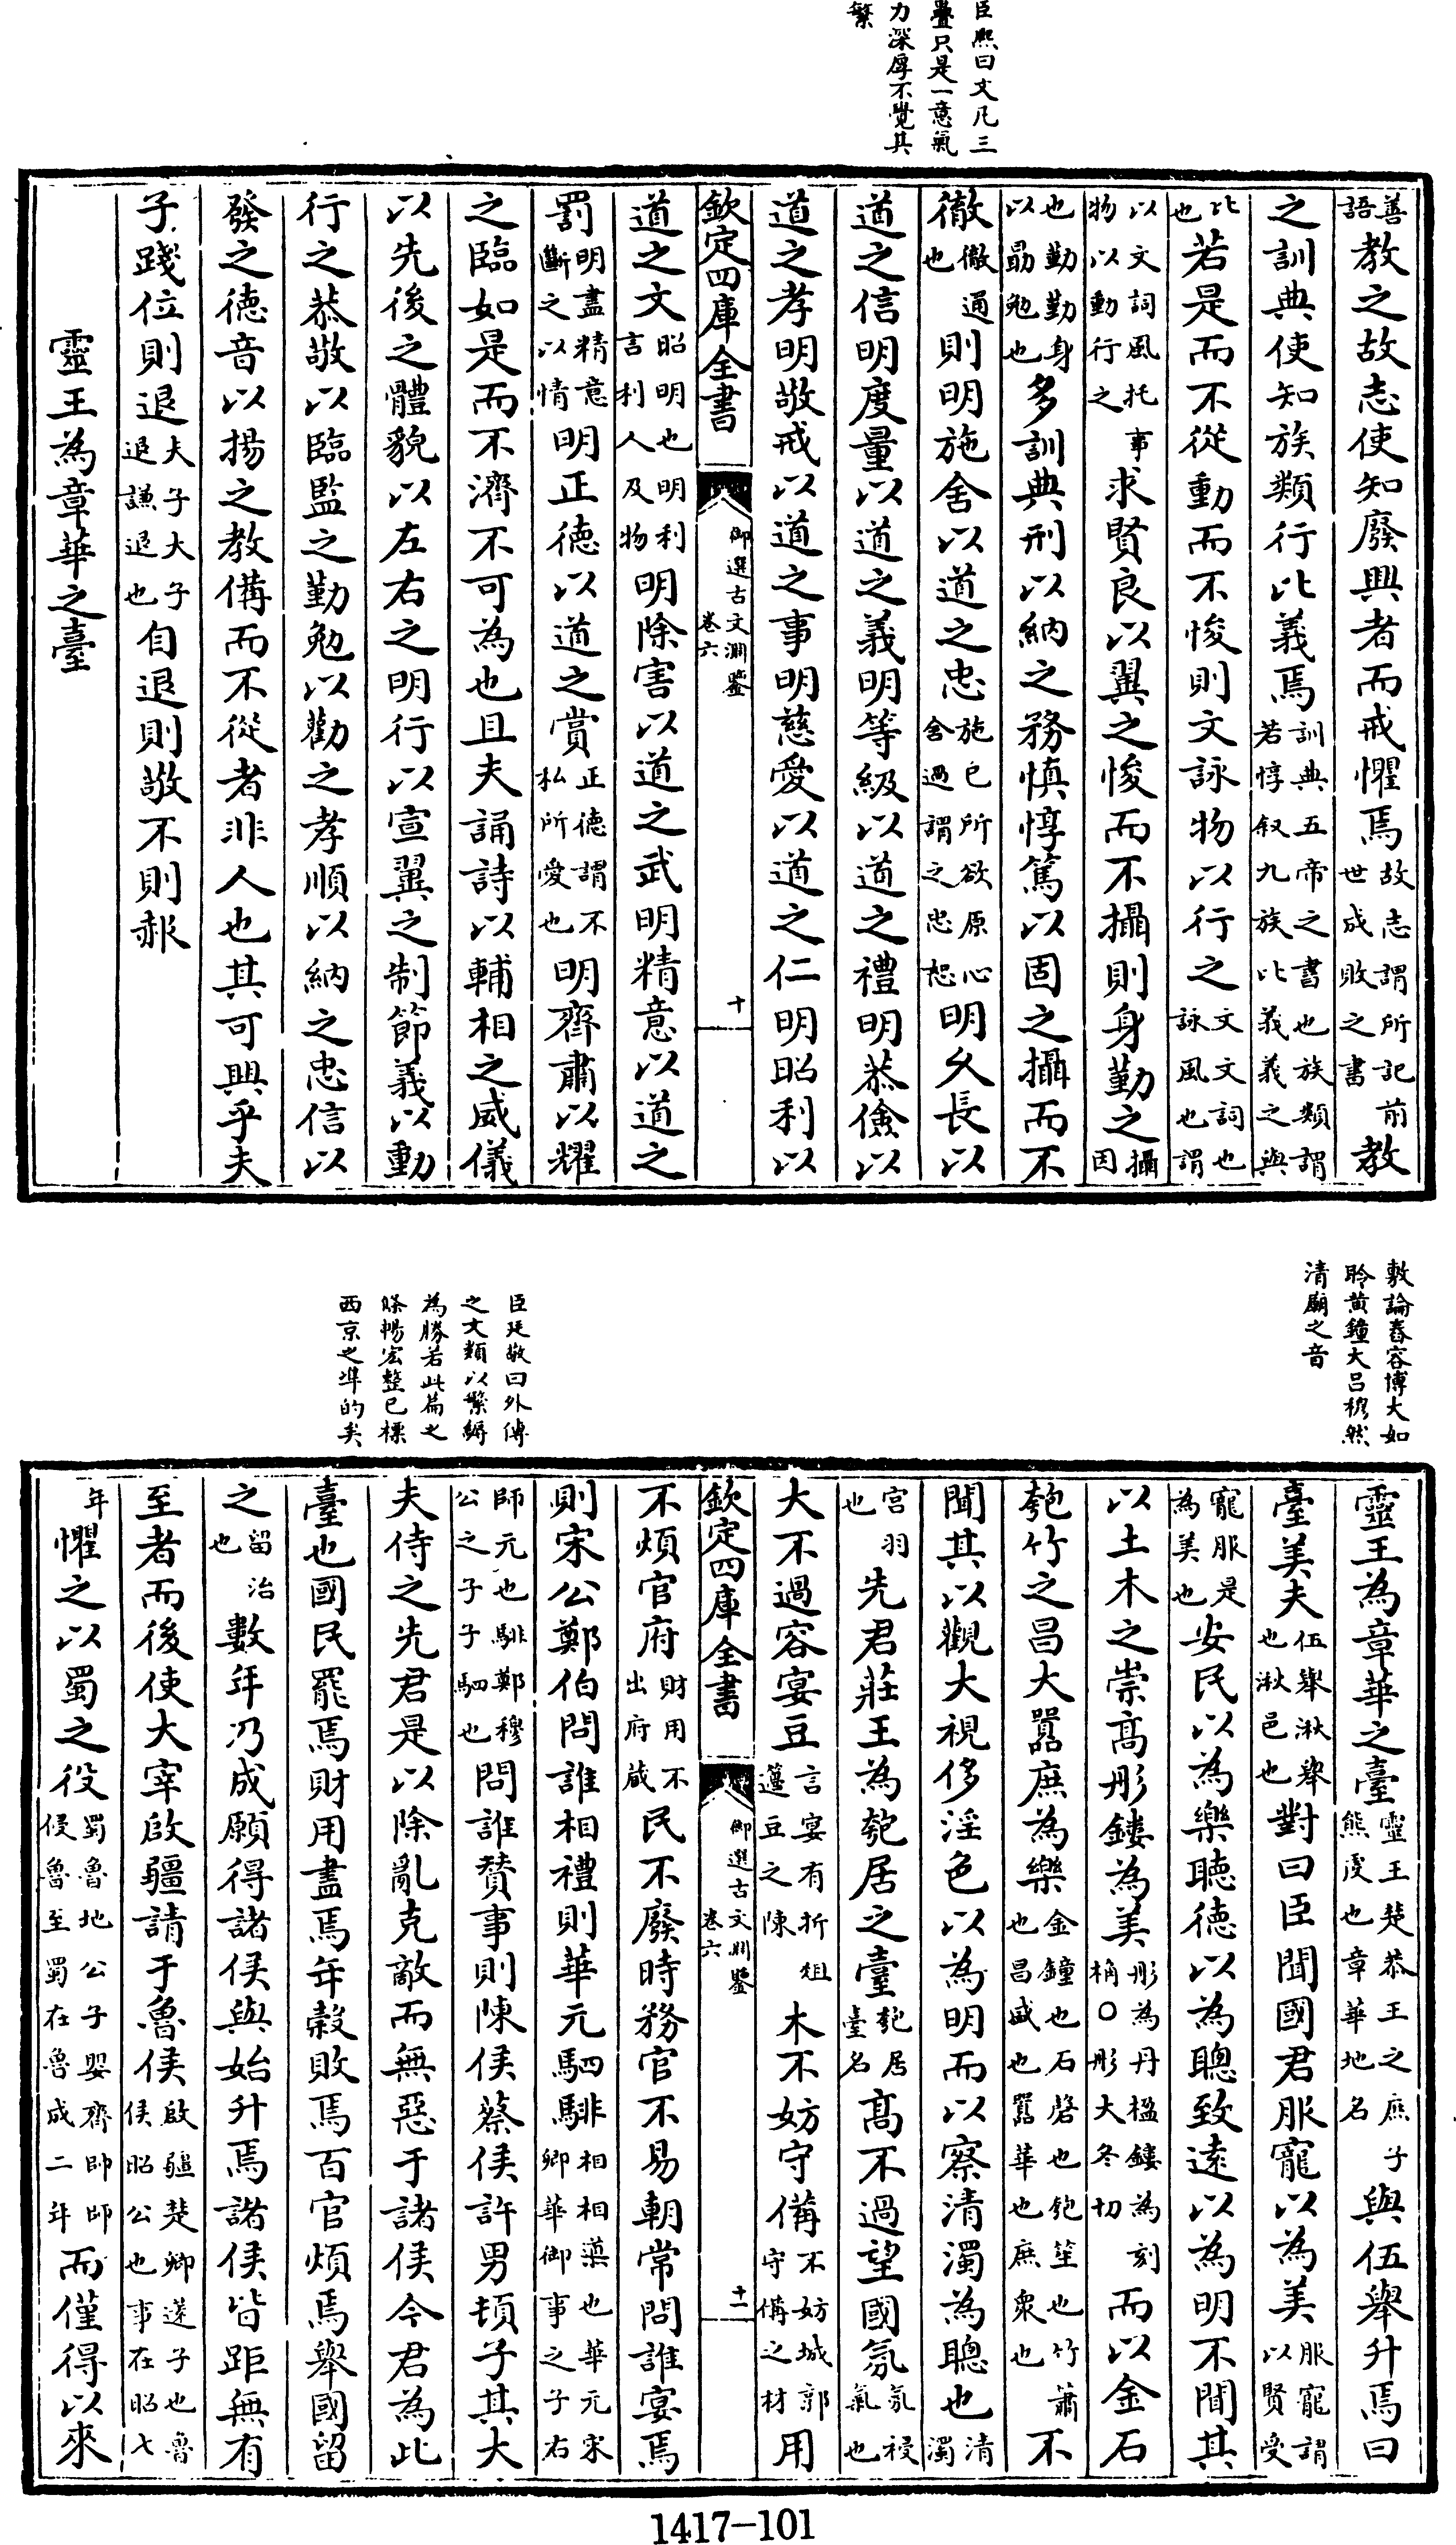 臣熙曰文凡三
疊只是一意氣
力深厚不覺其
繁
善語教之故志使知廢興者而戒懼焉故志謂所記前世成敗之書教
之訓典使知族類行比義焉訓典五帝之書也族類謂若惇叙九族比義義之與
比也若是而不從動而不悛則文詠物以行之文文詞也詠風也謂
以文詞風托事物以動行之求賢良以翼之悛而不攝則身勤之攝因
也勤勤身以勗勉也多訓典刑以納之務慎惇篤以固之攝而不
徹徹通也則明施舍以道之忠施已所欲原心舍過謂之忠恕明久長以
道之信明度量以道之義明等級以道之禮明恭儉以
道之孝明敬戒以道之事明慈愛以道之仁明昭利以
欽定四庫全書
御選古文淵鑒
卷六
十
道之文昭明也明利言利人及物明除害以道之武明精意以道之
罰明盡精意斷之以情明正德以道之賞正德謂不私所愛也明齊肅以耀
之臨如是而不濟不可為也且夫誦詩以輔相之威儀
以先後之體貌以左右之明行以宣翼之制節義以動
行之恭敬以臨監之勤勉以勸之孝順以納之忠信以
發之德音以揚之教備而不從者非人也其可興乎夫
子踐位則退夫子大子退謙退也自退則敬不則赧
靈王為章華之臺
敷論舂容博大如
聆黃鐘大呂穆然
清廟之音
靈王為章華之臺靈王楚恭王之庶子熊䖍也章華地名與伍舉升焉曰
臺美夫伍舉湫舉也湫邑也對曰臣聞國君服寵以為美服寵謂以賢受
寵服是為美也安民以為樂聽德以為聰致遠以為明不聞其
以土木之崇高彤鏤為美彤為丹楹鏤為刻桷○彤大冬切而以金石
匏竹之昌大囂庶為樂金鐘也石磬也匏笙也竹簫也昌盛也囂華也庶衆也不
聞其以觀大視侈淫色以為明而以察清濁為聰也清濁
宮羽也先君莊王為匏居之臺匏居臺名高不過望國氛氛祲氣也
大不過容宴豆言宴有折俎籩豆之陳木不妨守備不妨城郭守備之材用
欽定四庫全書
御選古文淵鑒
卷六
十一
不煩官府財用不出府藏民不廢時務官不易朝常問誰宴焉
則宋公鄭伯問誰相禮則華元駟騑相相導也華元宋卿華御事之子右
師元也騑鄭穆公之子子駟也問誰贊事則陳侯蔡侯許男頓子其大
夫侍之先君是以除亂克敵而無惡于諸侯今君為此
臺也國民罷焉財用盡焉年穀敗焉百官煩焉舉國留
之留治也數年乃成願得諸侯與始升焉諸侯皆距無有
至者而後使大宰啟疆請于魯侯啟疆楚卿薳子也魯侯昭公也事在昭七
年懼之以蜀之役蜀魯地公子嬰齊帥師侵魯至蜀在魯成二年而僅得以來
臣廷敬曰外傳
之文類以繁縟
為勝若此篇之
條暢宏整已標
西京之準的矣
1417—101